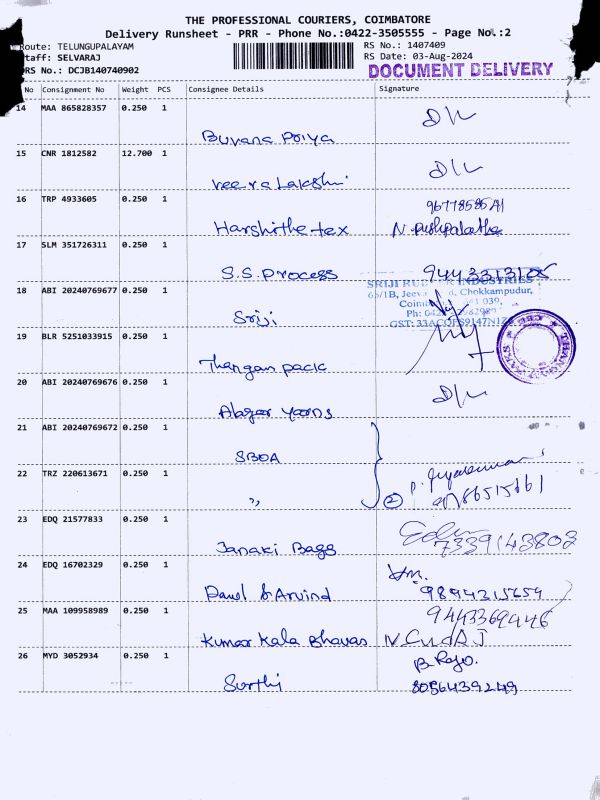 THE PROFESSIONAL COURIERS, COIMBATORE
Delivery Runsheet - PRR - Phone No.:0422-3505555 - Page No.:2
Route: TELUNGUPALAYAM RS No.: 1407409
Staff: SELVARAJ RS Date: 03-Aug-2024
DRS No.: DCJB140740902 DOCUMENT DELIVERY
No Consignment No Weight PCS Consignee Details Signature
14 MAA 865828357 0.250 1
Buvana Priya D/L
15 CNR 1812582 12.700 1
Veera Lakshmi D/L
16 TRP 4933605 0.250 1
Harshithe tex N. Pushpalatha
17 SLM 351726311 0.250 1
S.S. Process
SRIJI INDUSTRIES
65/1B, Chokkampudur,
18 ABI 20240769677 0.250 1
Sriji
19 BLR 5251033915 0.250 1
Thangam pack
20 ABI 20240769676 0.250 1
Abzar yarns D/L
21 ABI 20240769672 0.250 1
SBOA
22 TRZ 220613671 0.250 1
" ②
23 EDQ 21577833 0.250 1
Janaki Bags 7339143802
24 EDQ 16702329 0.250 1
Paul & Arvind 9894215659
25 MAA 109958989 0.250 1
9443369446
Kumar Kala Bhavas
26 MYD 3052934 0.250 1
B. Raja.
Surthi 8056439249